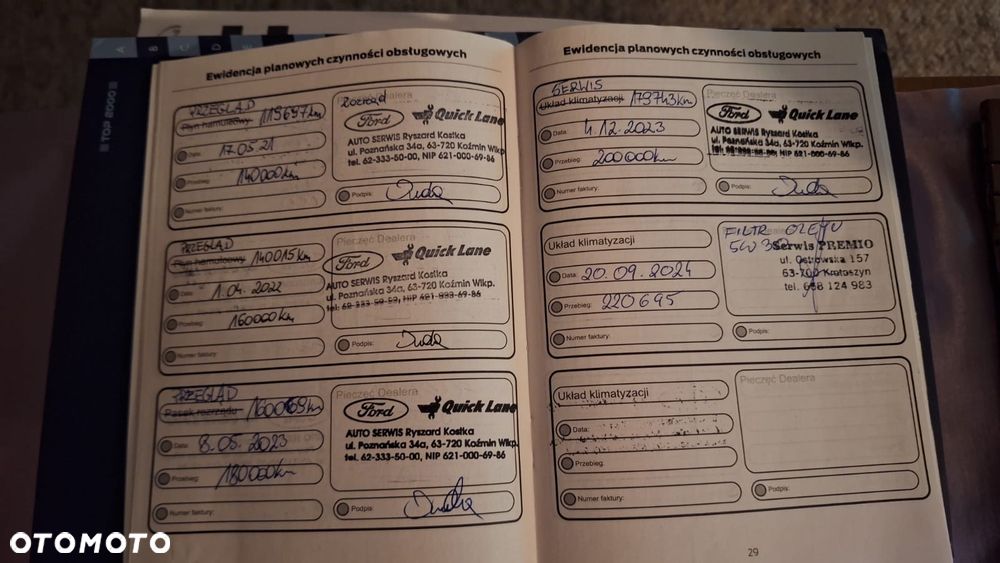 TOP 2000
A
B
C
D
Ewidencja planowych czynności obsługowych
PRZEGLĄD
Płyn hamulcowy 119697km
Data: 17.05 21
Przebieg: 140000km
Numer faktury:
Pieczęć Dealera
Rozrząd
Ford Quick Lane
AUTO SERWIS Ryszard Kostka
ul. Poznańska 34a, 63-720 Koźmin Wlkp
tel. 62-333-50-00, NIP 621-000-69-86
Podpis: Duda
PRZEGLĄD
Płyn hamulcowy 140015km
Data: 1.04.2022
Przebieg: 160000km
Numer faktury:
Pieczęć Dealera
Ford Quick Lane
AUTO SERWIS Ryszard Kostka
ul. Poznańska 34a, 63-720 Koźmin Wlkp.
Podpis: Duda
PRZEGLĄD
Pasek rozrządu 160069km
Data: 8.05.2023
Przebieg: 180000km
Numer faktury:
Pieczęć Dealera
Ford Quick Lane
AUTO SERWIS Ryszard Kostka
ul. Poznańska 34a, 63-720 Koźmin Wlkp.
tel. 62-333-50-00, NIP 621-000-69-86
Podpis: Duda
Ewidencja planowych czynności obsługowych
SERWIS
Układ klimatyzacji 179743km
Data: 4.12.2023
Przebieg: 200000km
Numer faktury:
Pieczęć Dealera
Ford Quick Lane
AUTO SERWIS Ryszard Kostka
ul. Poznańska 34a, 63-720 Koźmin Wlkp.
Podpis: Duda
Układ klimatyzacji
Data: 20.09.2024
Przebieg: 220695
Numer faktury:
FILTR OLEJU
5W30
Serwis PREMIO
ul. Ostrowska 157
63-700 Krotoszyn
tel. 668 124 983
Podpis:
Układ klimatyzacji
Data:
Przebieg:
Numer faktury:
Pieczęć Dealera
Podpis:
29
OTOMOTO